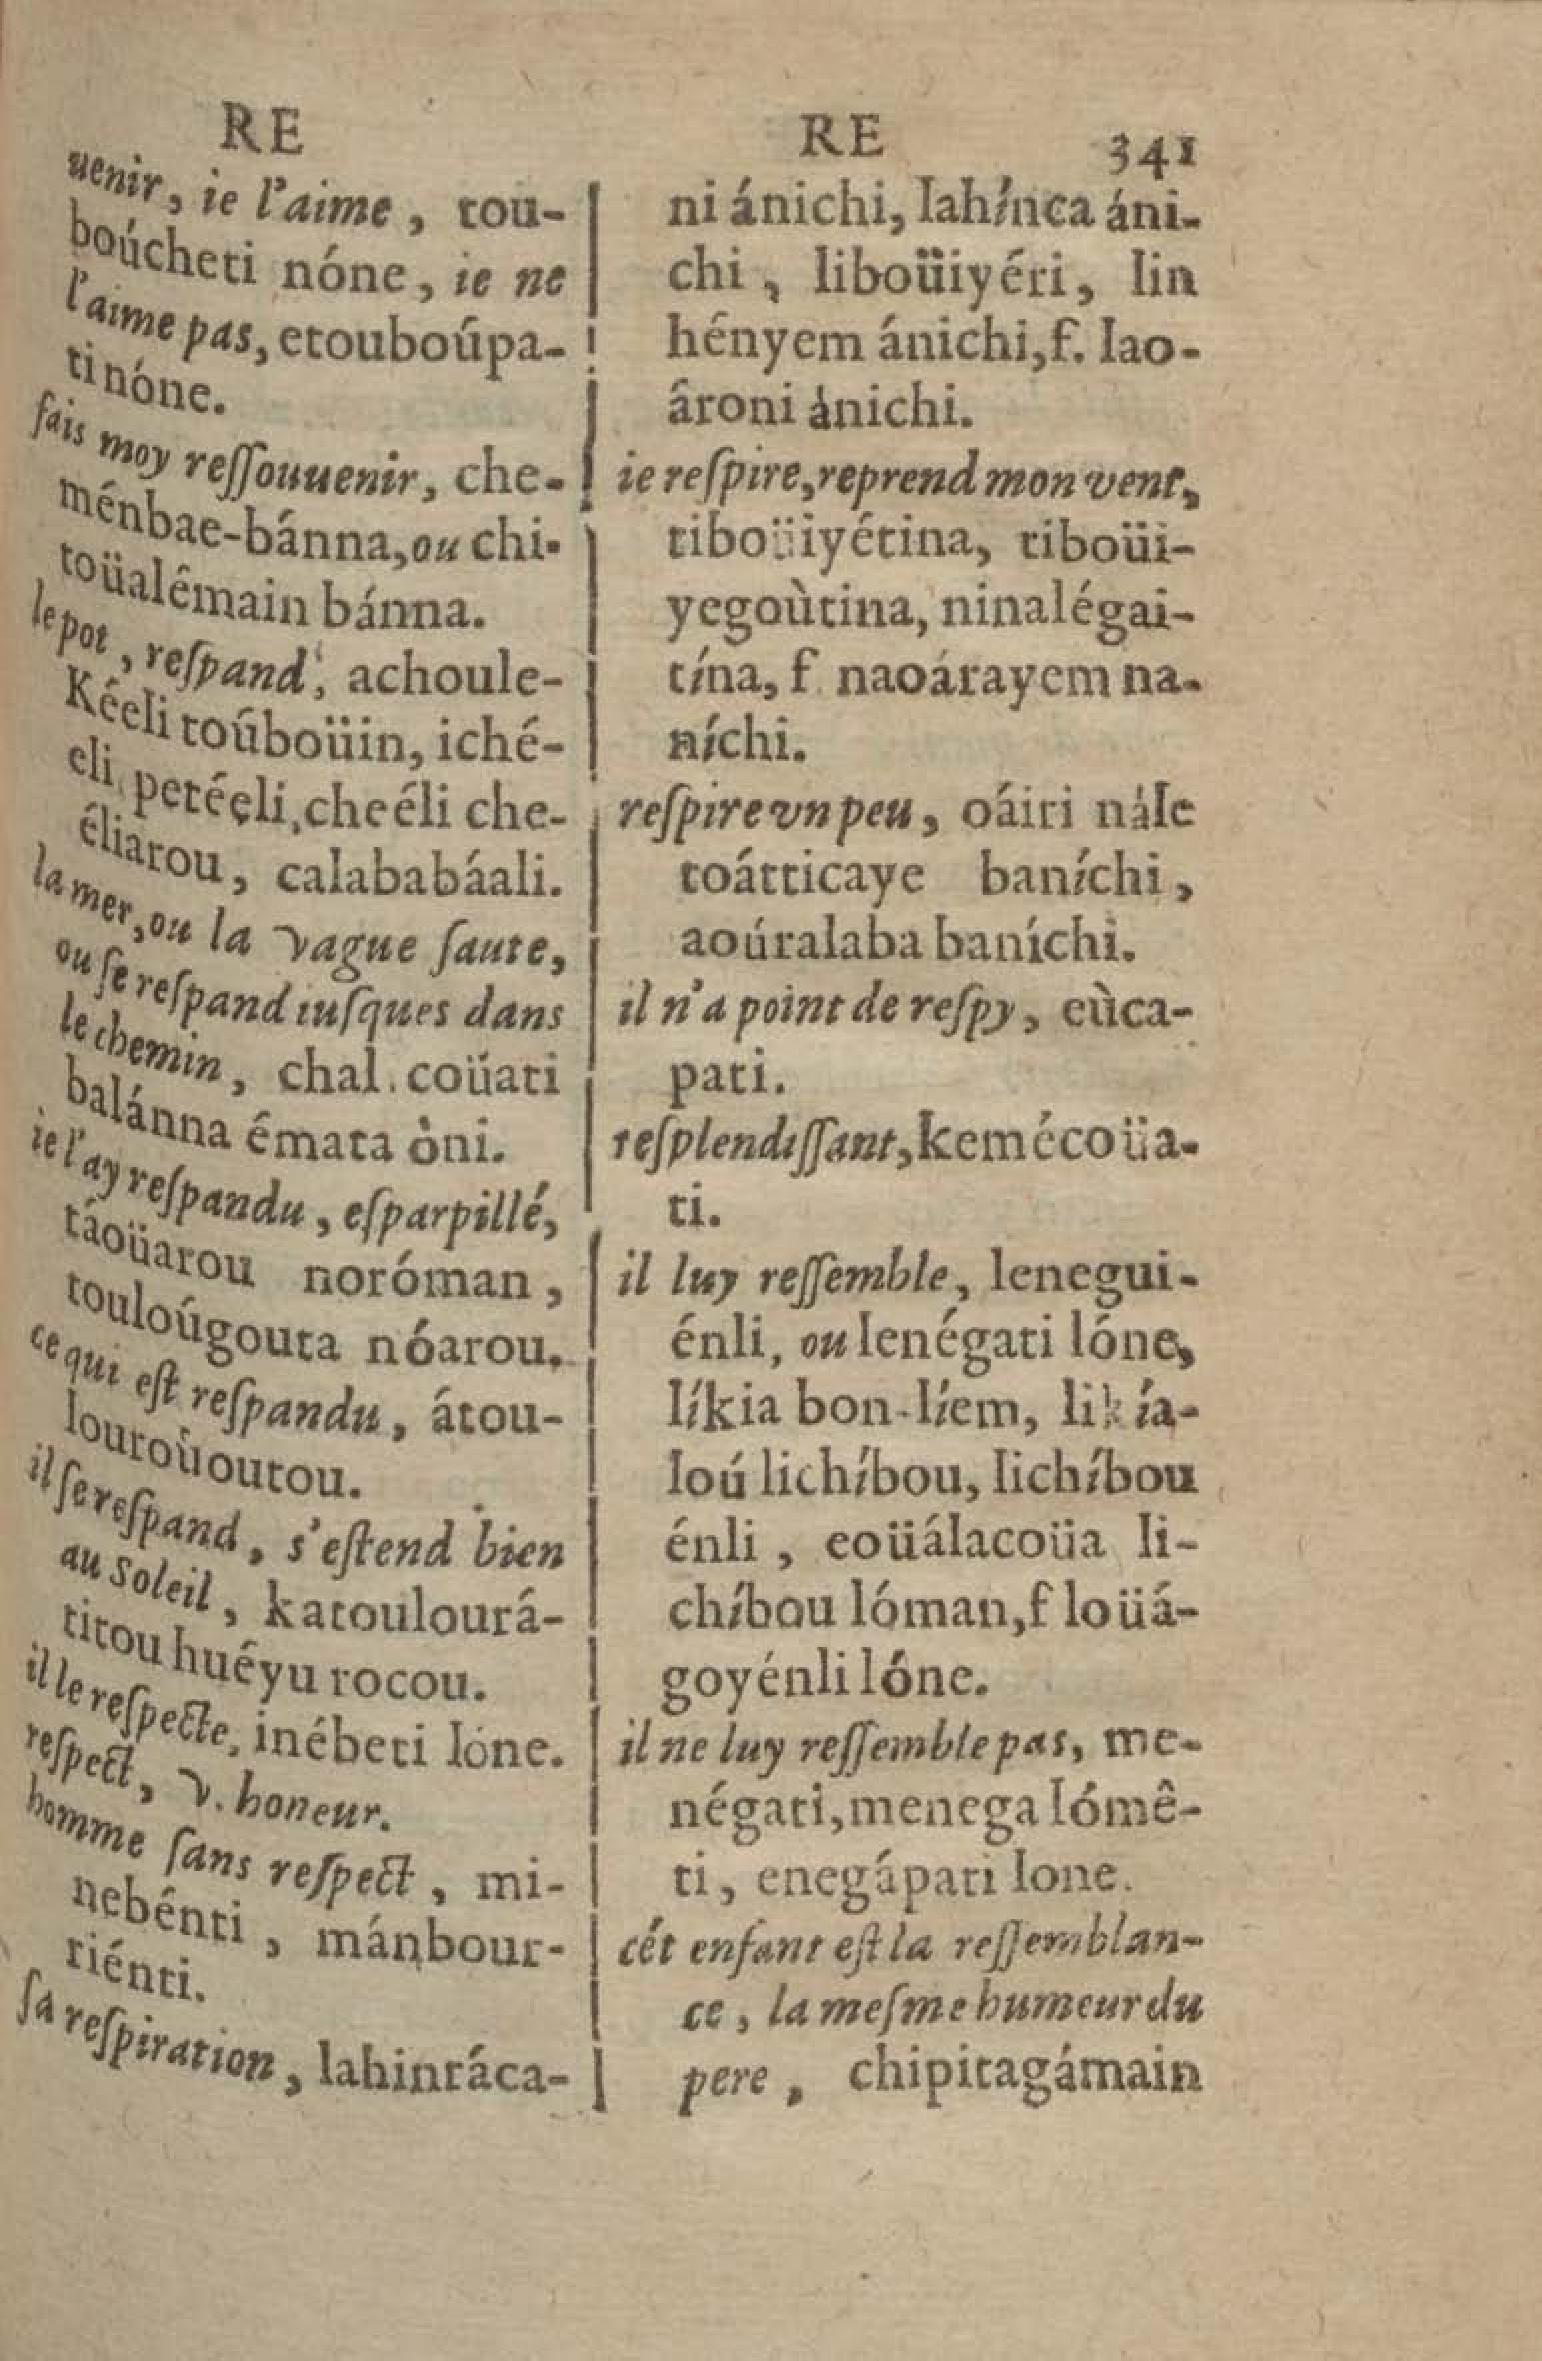 RE
uenir, ie l'aime, tou-
boúcheti nóne, ie ne
l'aime pas, etouboúpa-
ti nóne.
fais moy reſſouuenir, che-
ménbae-bánna, ou chi-
toüalêmain bánna.
le pot, reſpand, achoule-
Kéeli toúboüin, iché-
eli, petéeli, cheéli che-
éliarou, calababáali.
la mer, ou la vague ſaute,
ou ſe reſpand iuſques dans
le chemin, chal. coüati
balánna émata òni.
ie l'ay reſpandu, eſparpillé,
táoüarou noróman,
touloúgouta nóarou.
ce qui eſt reſpandu, átou-
louroùoutou.
il ſe reſpand, s'eſtend bien
au Soleil, katoulourá-
titou huéyu rocou.
il le reſpecte, inébeti lóne.
reſpect, v. honeur.
homme ſans reſpect, mi-
nebénti, mánbour-
riénti.
ſa reſpiration, lahintáca-
RE 341
ni ánichi, lahínca áni-
chi, liboüiyéri, lin
hényem ánichi, f. lao-
âroni ánichi.
ie reſpire, reprend mon vent,
tiboüiyétina, tiboüi-
yegoùtina, ninalégai-
tína, f naoárayem na-
níchi.
reſpire vn peu, oáiri nále
toátticaye baníchi,
aoúralaba baníchi.
il n'a point de reſpy, eùca-
pati.
reſplendiſſant, kemécoüa-
ti.
il luy reſſemble, lenegui-
énli, ou lenégati lóne,
líkia bon-líem, likía-
loú lichíbou, lichíbou
énli, eoüálacoüa li-
chíbou lóman, f loüá-
goyénli lóne.
il ne luy reſſemble pas, me-
négati, menega lómê-
ti, enegápati lone.
cét enfant eſt la reſſemblan-
ce, la meſme humeur du
pere, chipitagámain